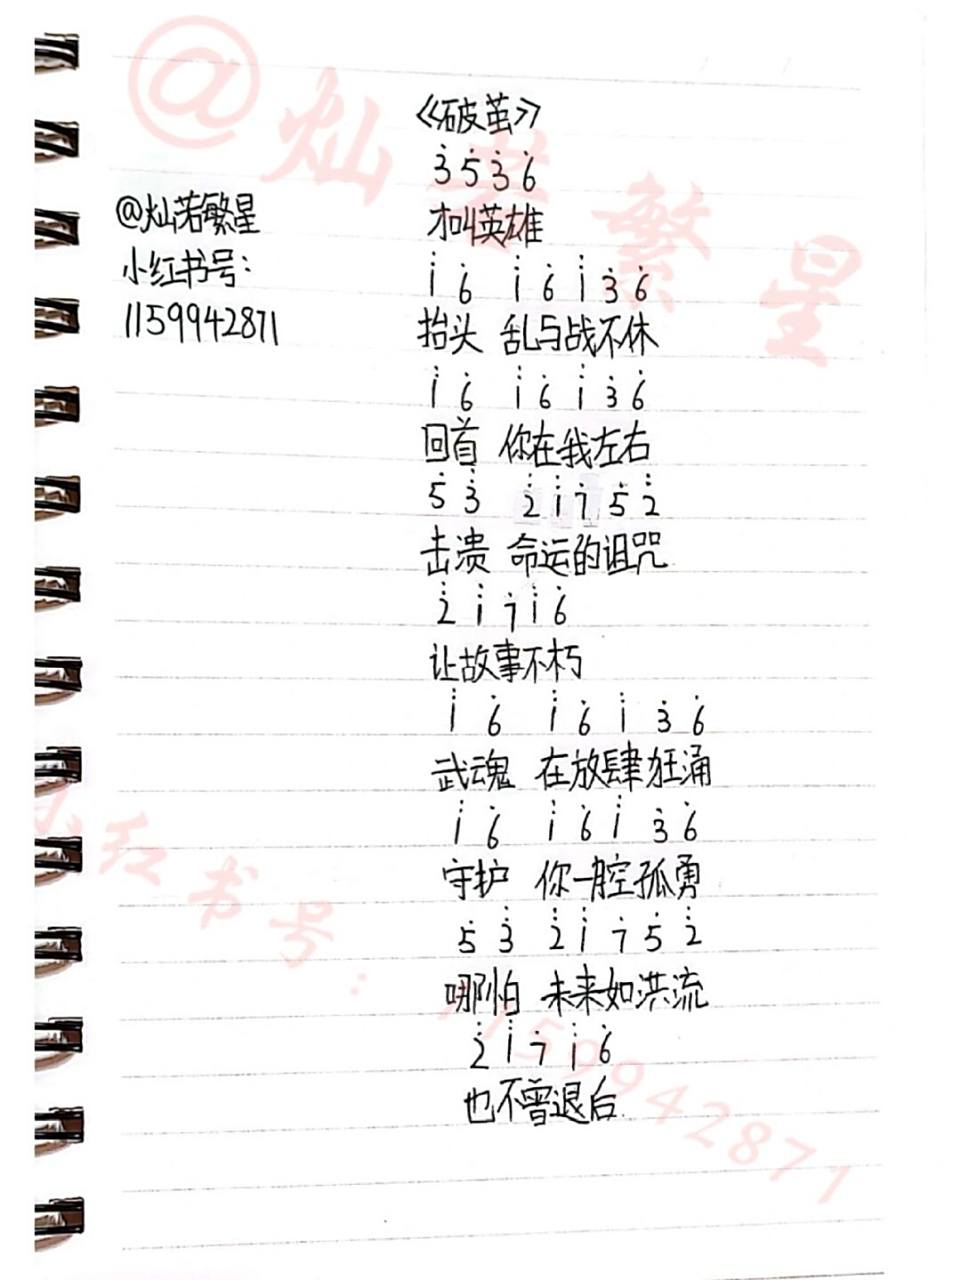 《破茧》
3̇ 5̇ 3̇ 6̇
才叫英雄
@灿若繁星
小红书号：
1159942871
1̈ 6̇ 1̈ 6̇ 1̈ 3̇ 6̇
抬头 乱与战不休
1̈ 6̇ 1̈ 6̇ 1̈ 3̇ 6̇
回首 你在我左右
5̇ 3̈ 2̈ 1̈ 7̇ 5̇ 2̈
击溃 命运的诅咒
2̈ 1̈ 7̇ 1̈ 6̇
让故事不朽
1̈ 6̇ 1̈ 6̇ 1̈ 3̇ 6̇
武魂 在放肆狂涌
1̈ 6̇ 1̈ 6̇ 1̈ 3̇ 6̇
守护 你一腔孤勇
5̇ 3̈ 2̈ 1̈ 7̇ 5̇ 2̈
哪怕 未来如洪流
2̈ 1̈ 7̇ 1̈ 6̇
也不曾退后
@灿若繁星
小红书号：1159942871